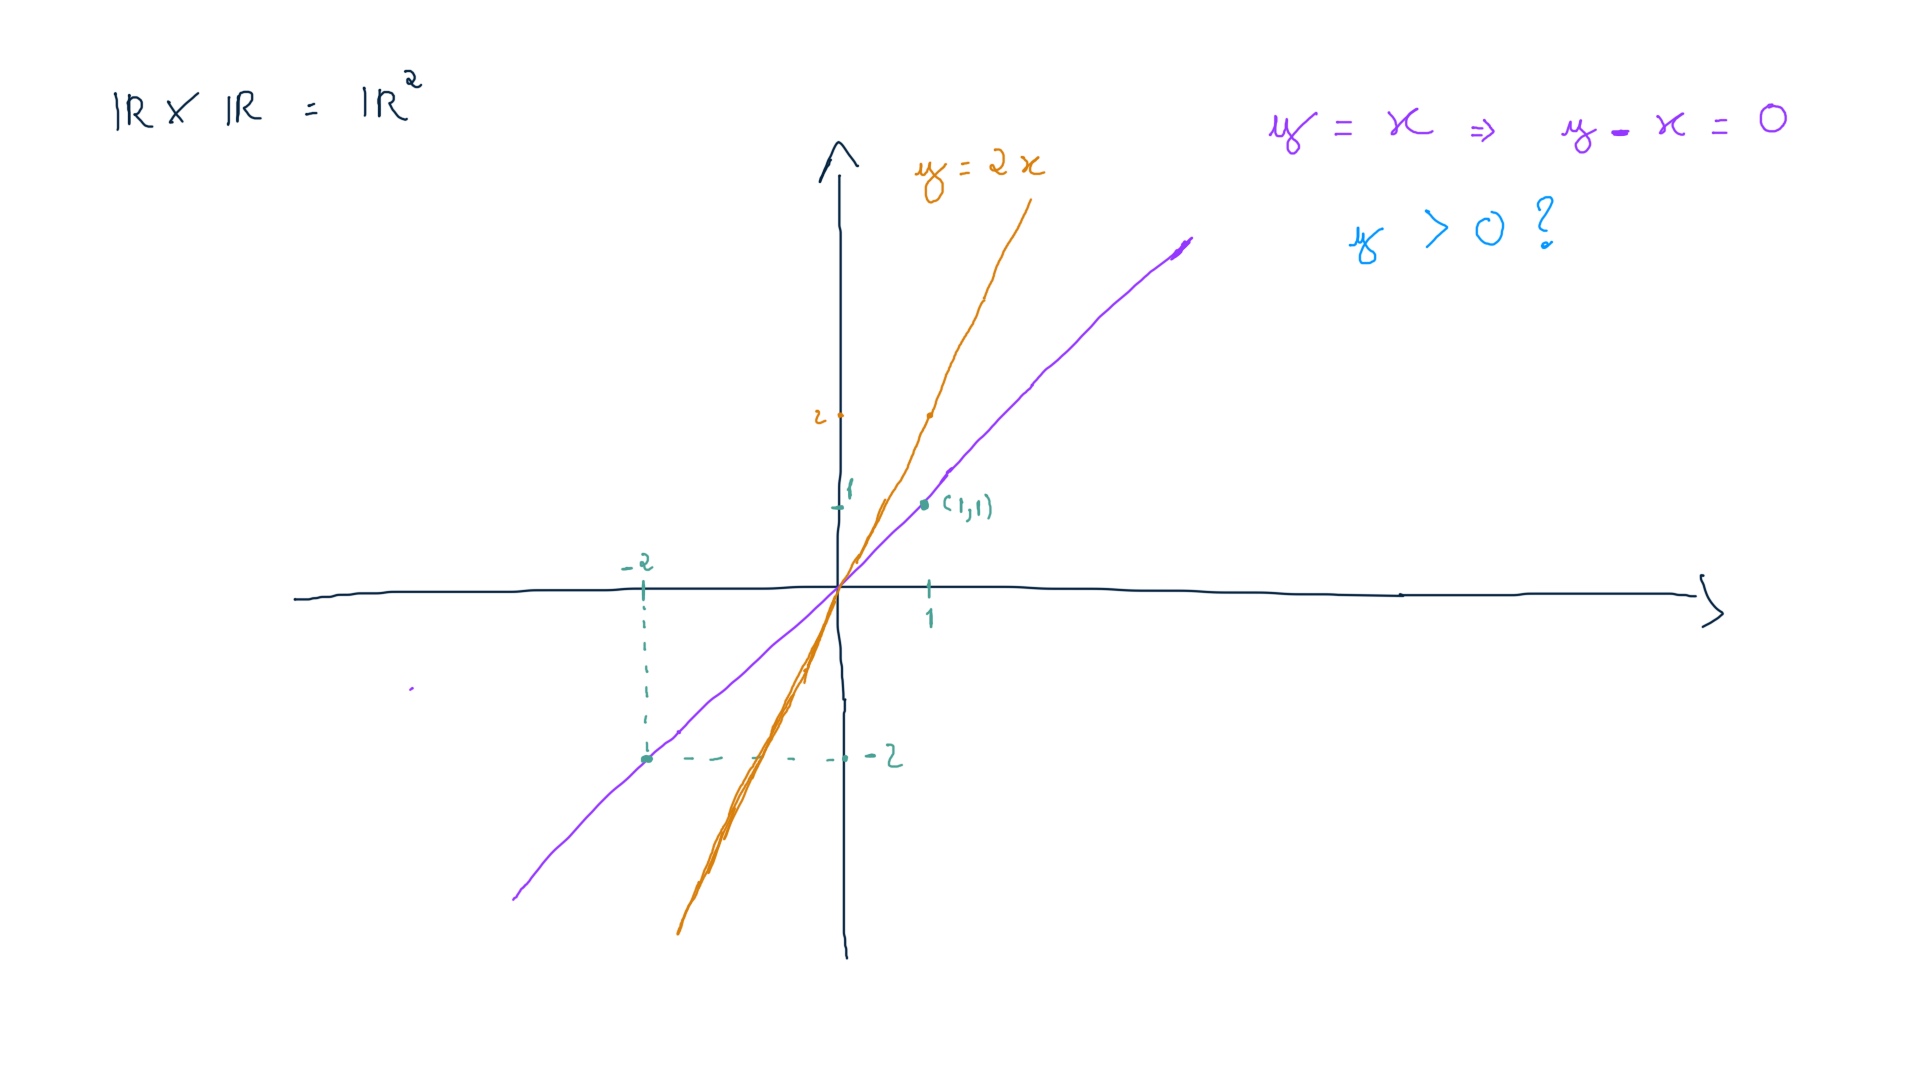 ℝ × ℝ = ℝ²
y = x ⇒ y - x = 0
y = 2x
y > 0 ?
2
1
(1,1)
-2
1
-2